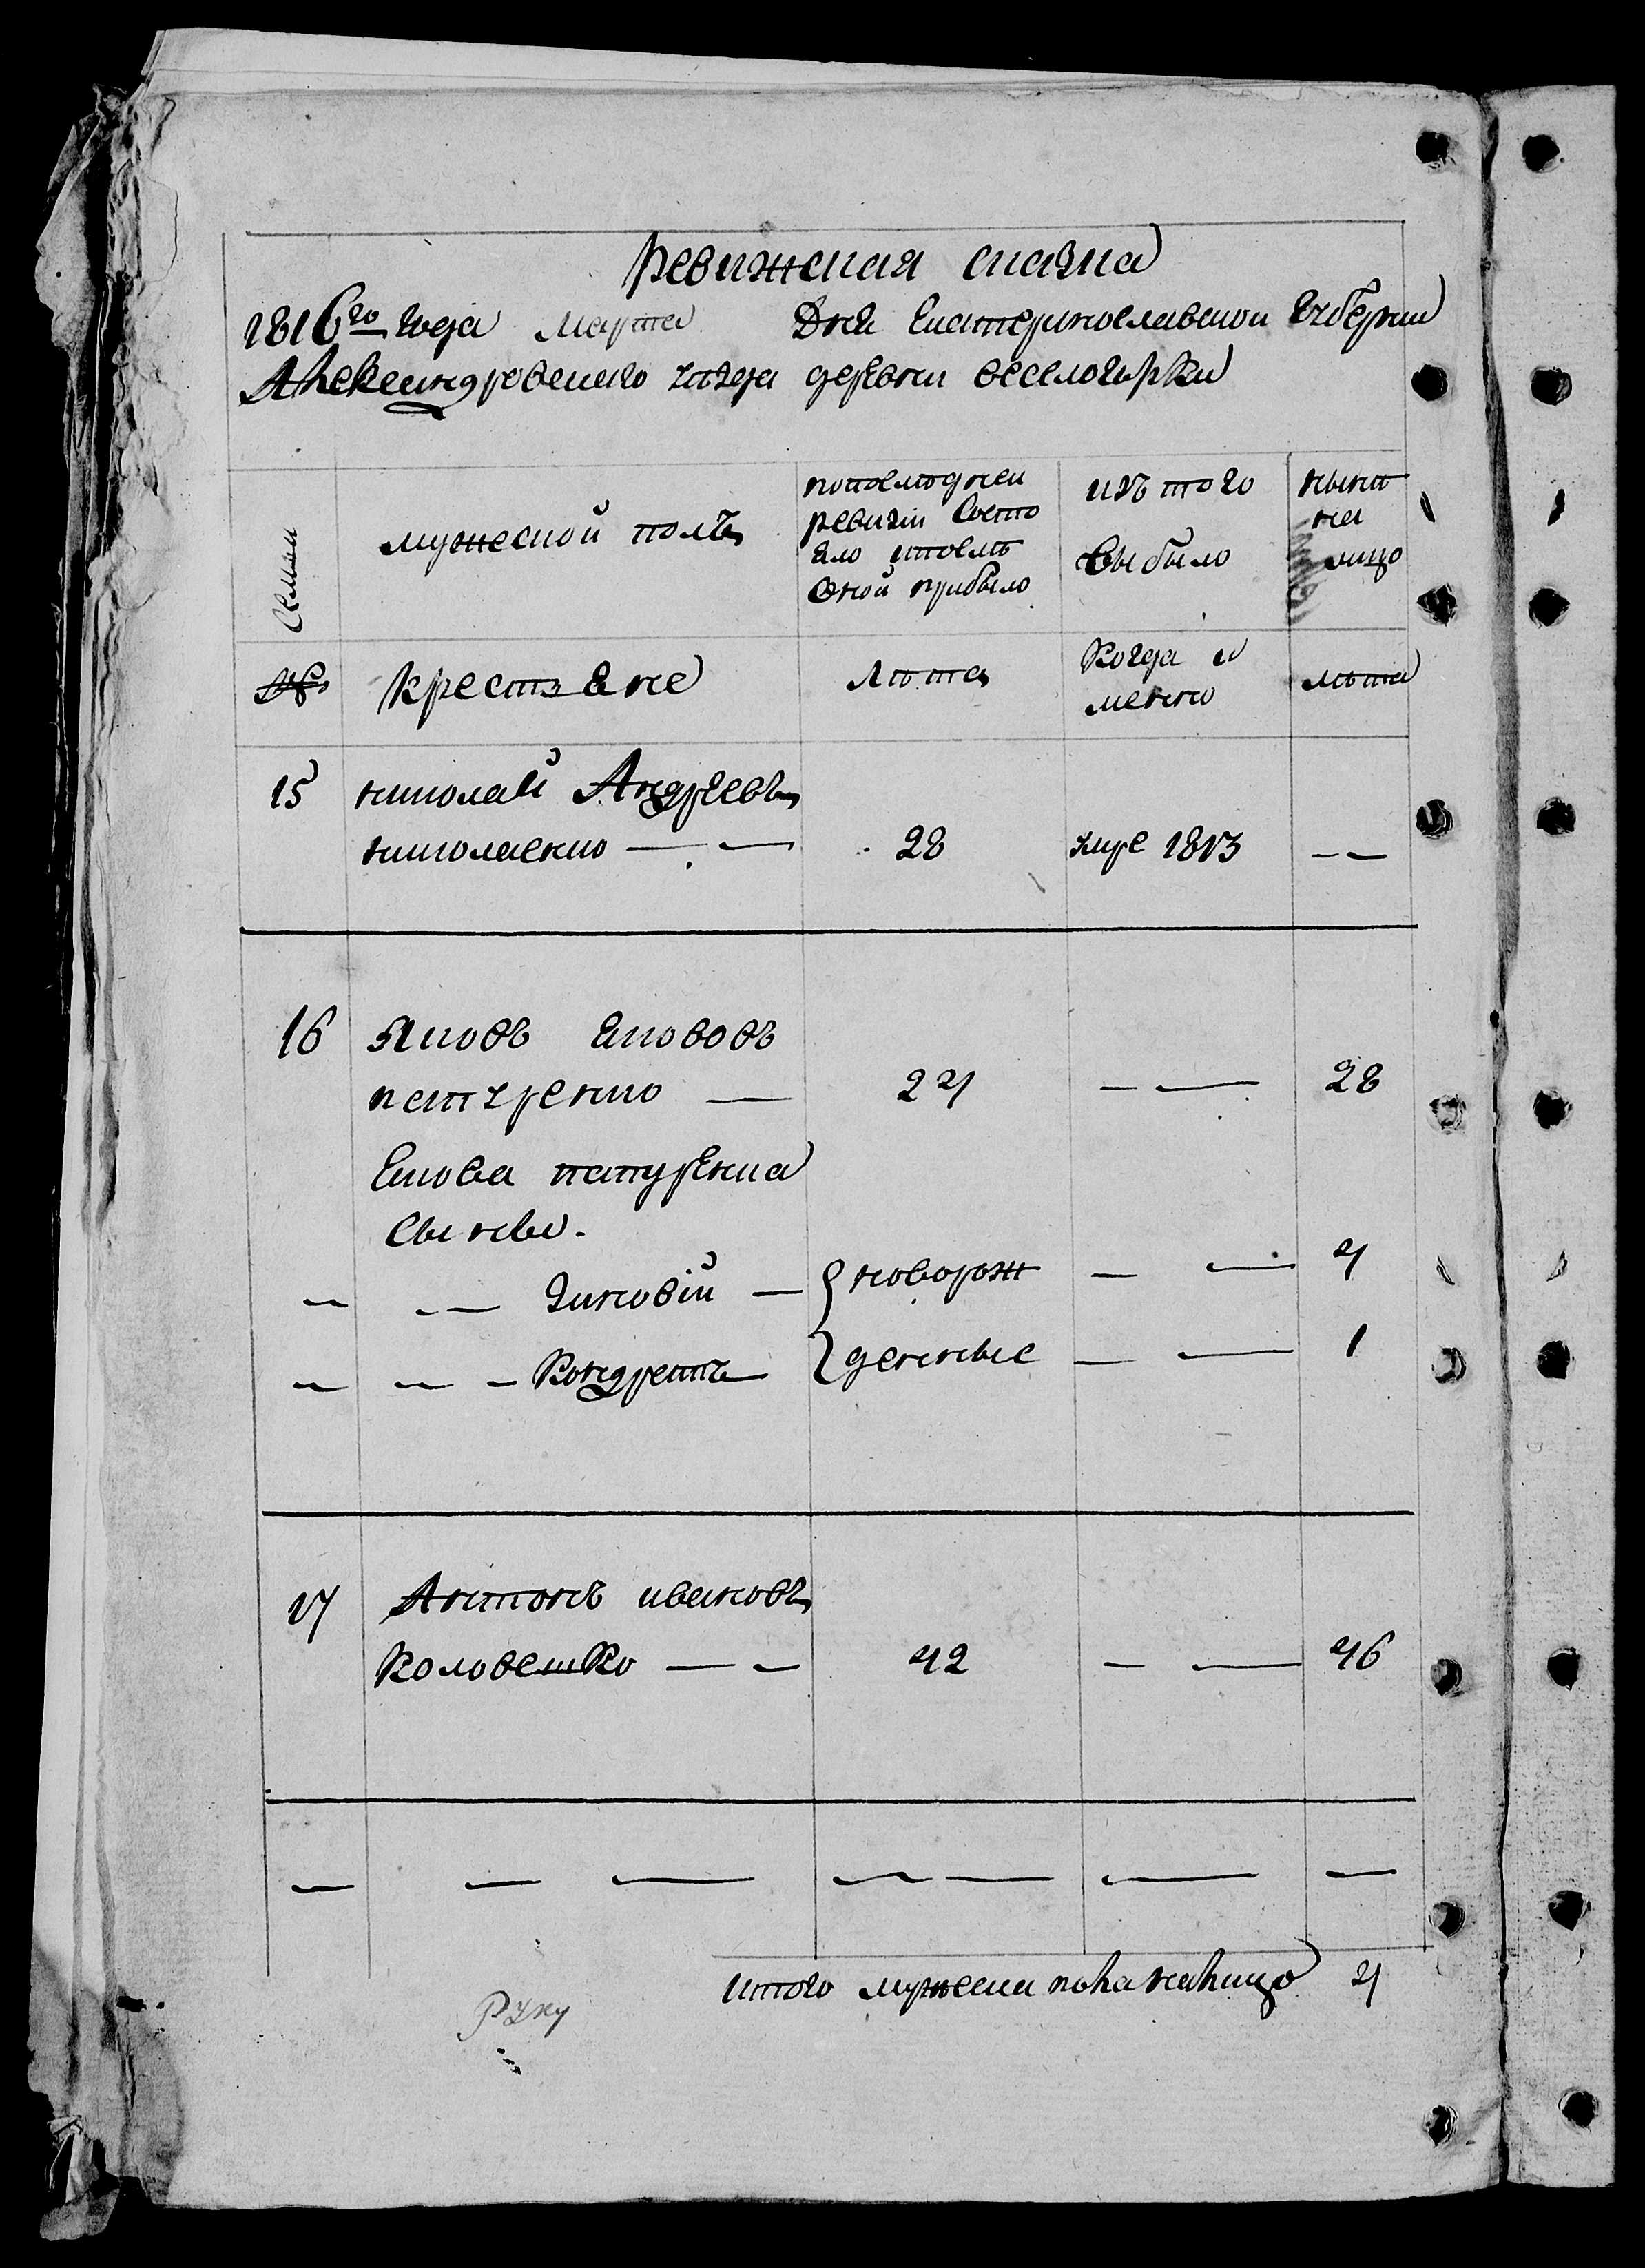 ревижская сказка
1816го года Марта Дня Екатеринославской губернии
Александровского уезда деревни веселогорки
Семьи
мужеской полъ
попоследней
ревизіи Состо
яло ипослѣ
Оной прибыло
изъ того
выбыло
нынѣ
на
лицо
№
крестъяне
Лѣта
Когда и
менно
лѣта
15 николай Андреевъ
николаенко — — 28 умре 1813 — —
16 Яковъ Якововъ
петуренко — 24 — — 28
Екова петуренка
Сыновѣ.
— — — Зиновій — новорож — — 4
— — — Кондратъ деннные — — 1
17 Антонъ ивановъ
Коловешко — — 42 — — 46
— — — — — — — —
итого мужеска пола налицо 4
Руку